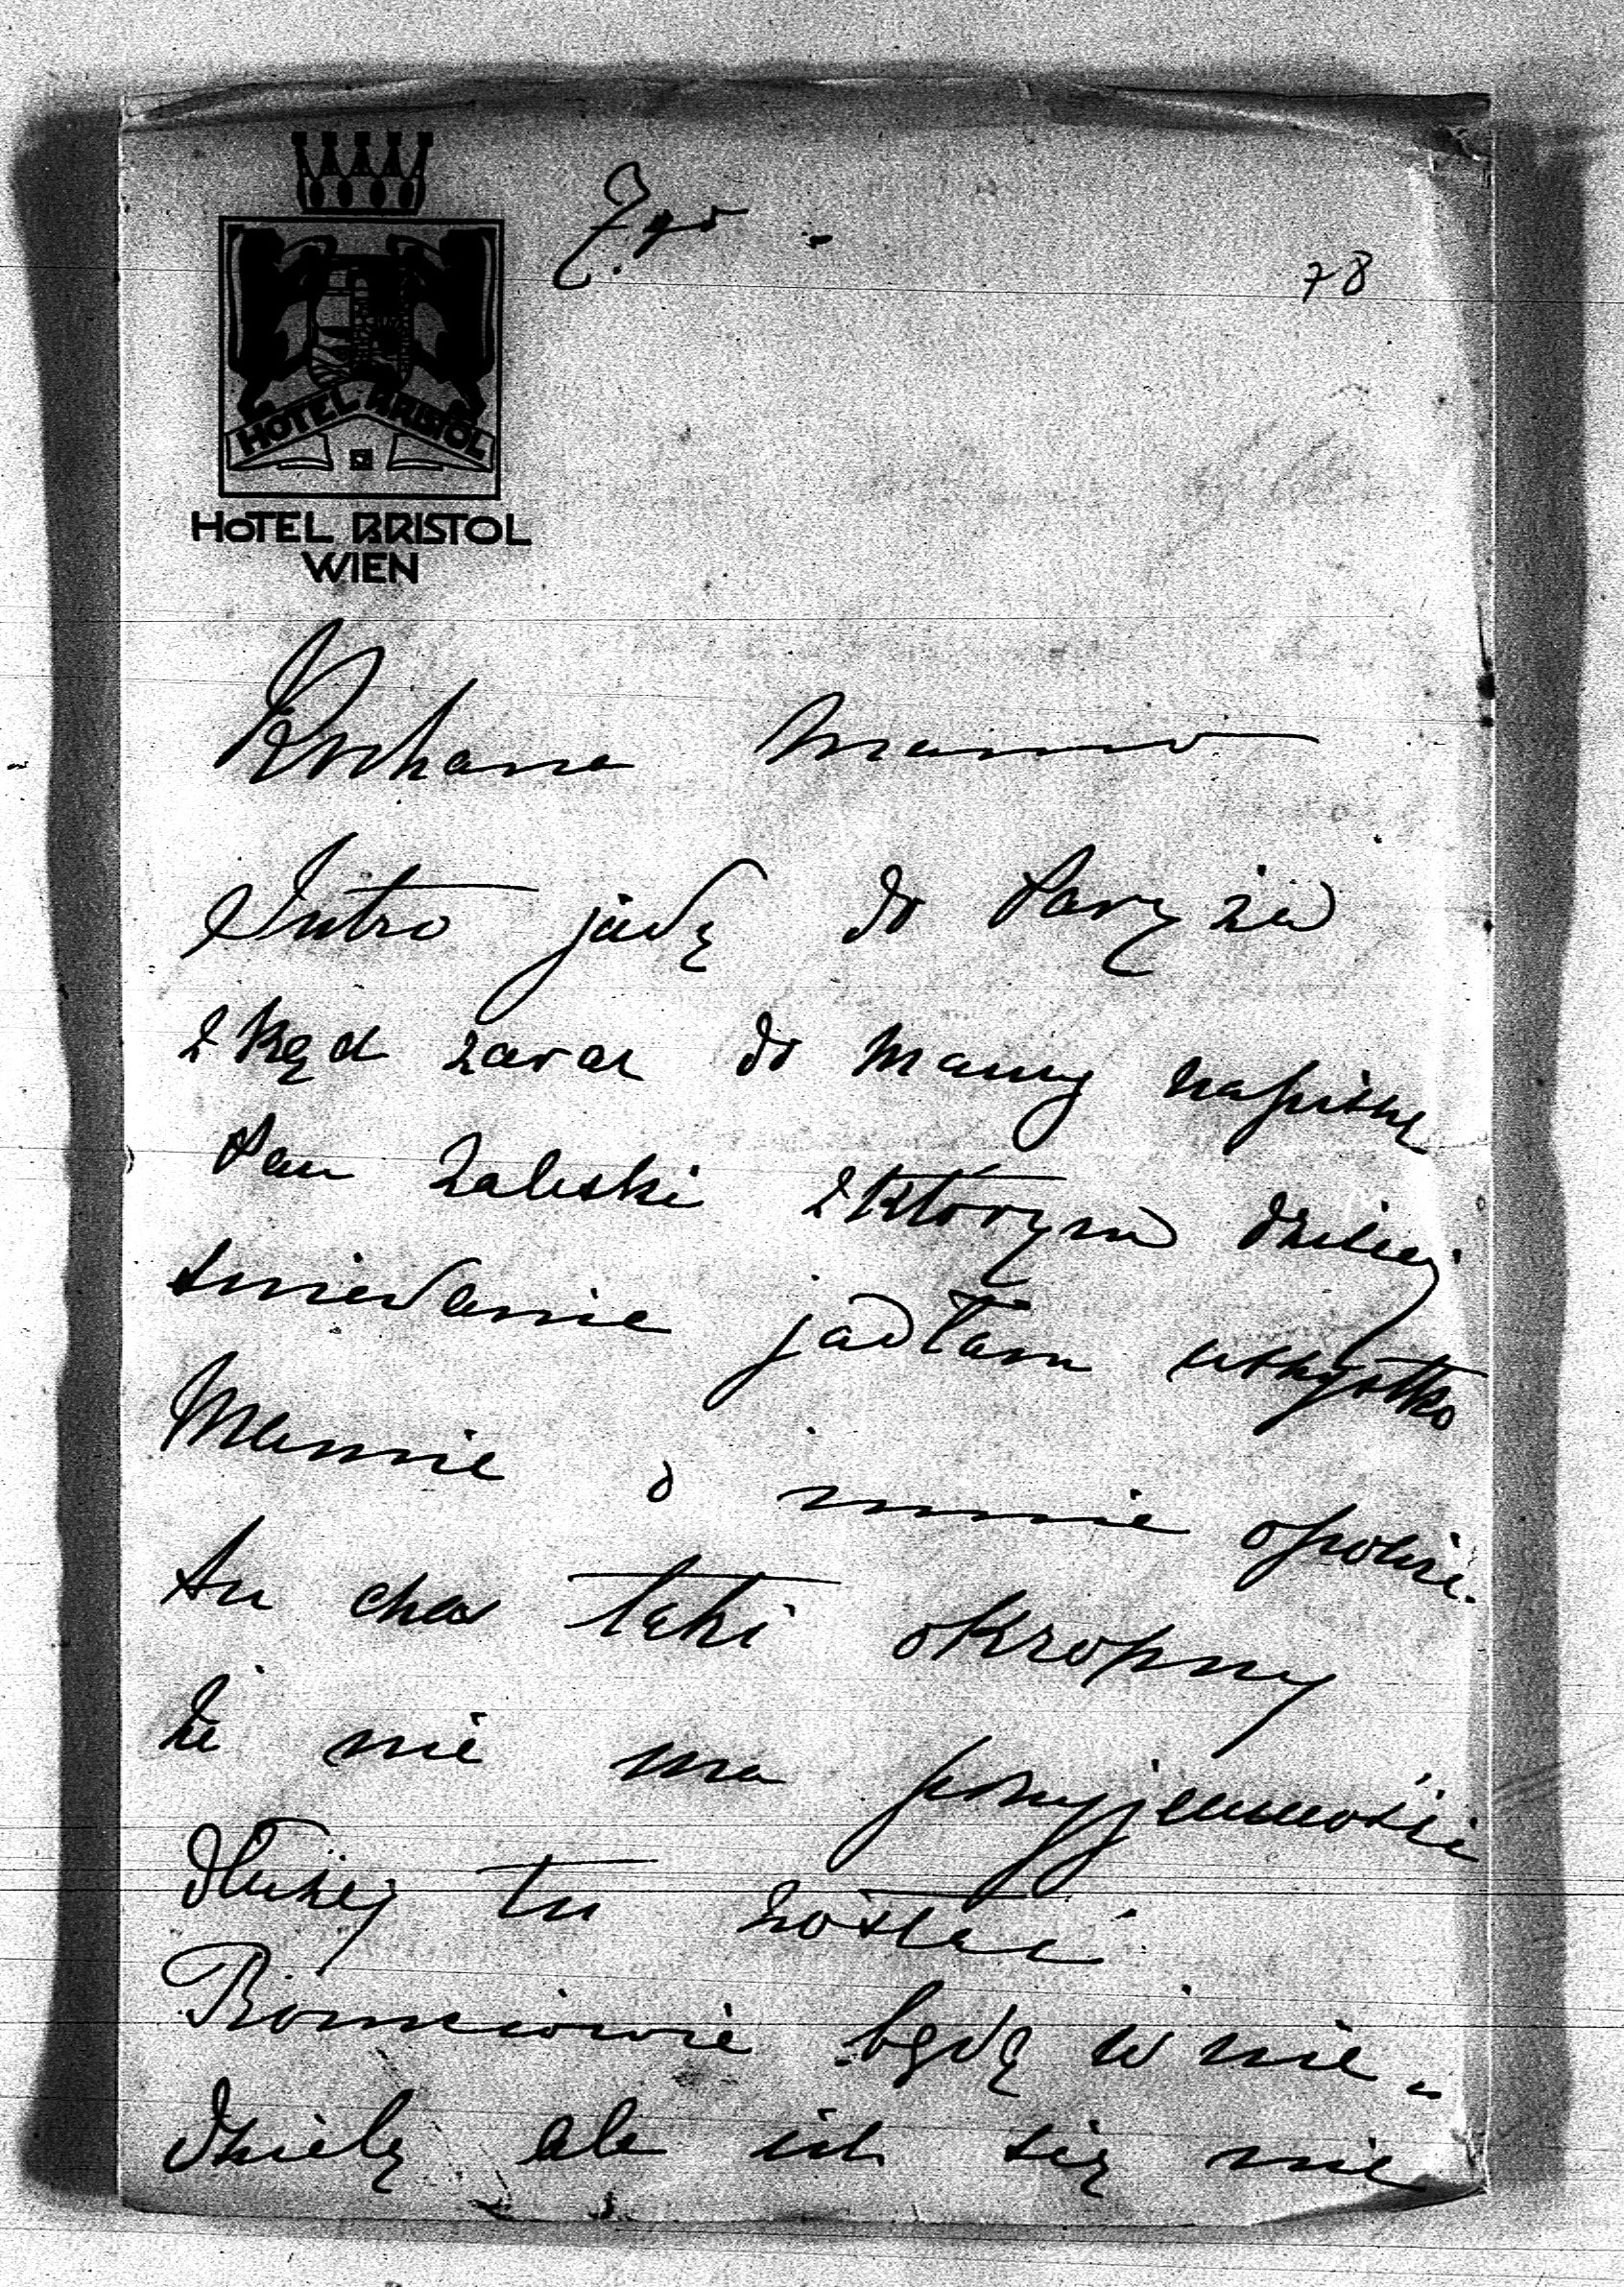 78
HOTEL BRISTOL
HOTEL BRISTOL
WIEN
Kochana Mamo
Jutro jadę do Paryża
zkąd zaraz do Mamy napiszę
Pan Zaleski z którym dzisiej
śniadanie jadłam wszystko
Mamie o mnie opowie.
Tu czas taki okropny
że nie ma przyjemności
dłużej tu zostać
Romciowie będą w nie„
dzielę ale ich się nie